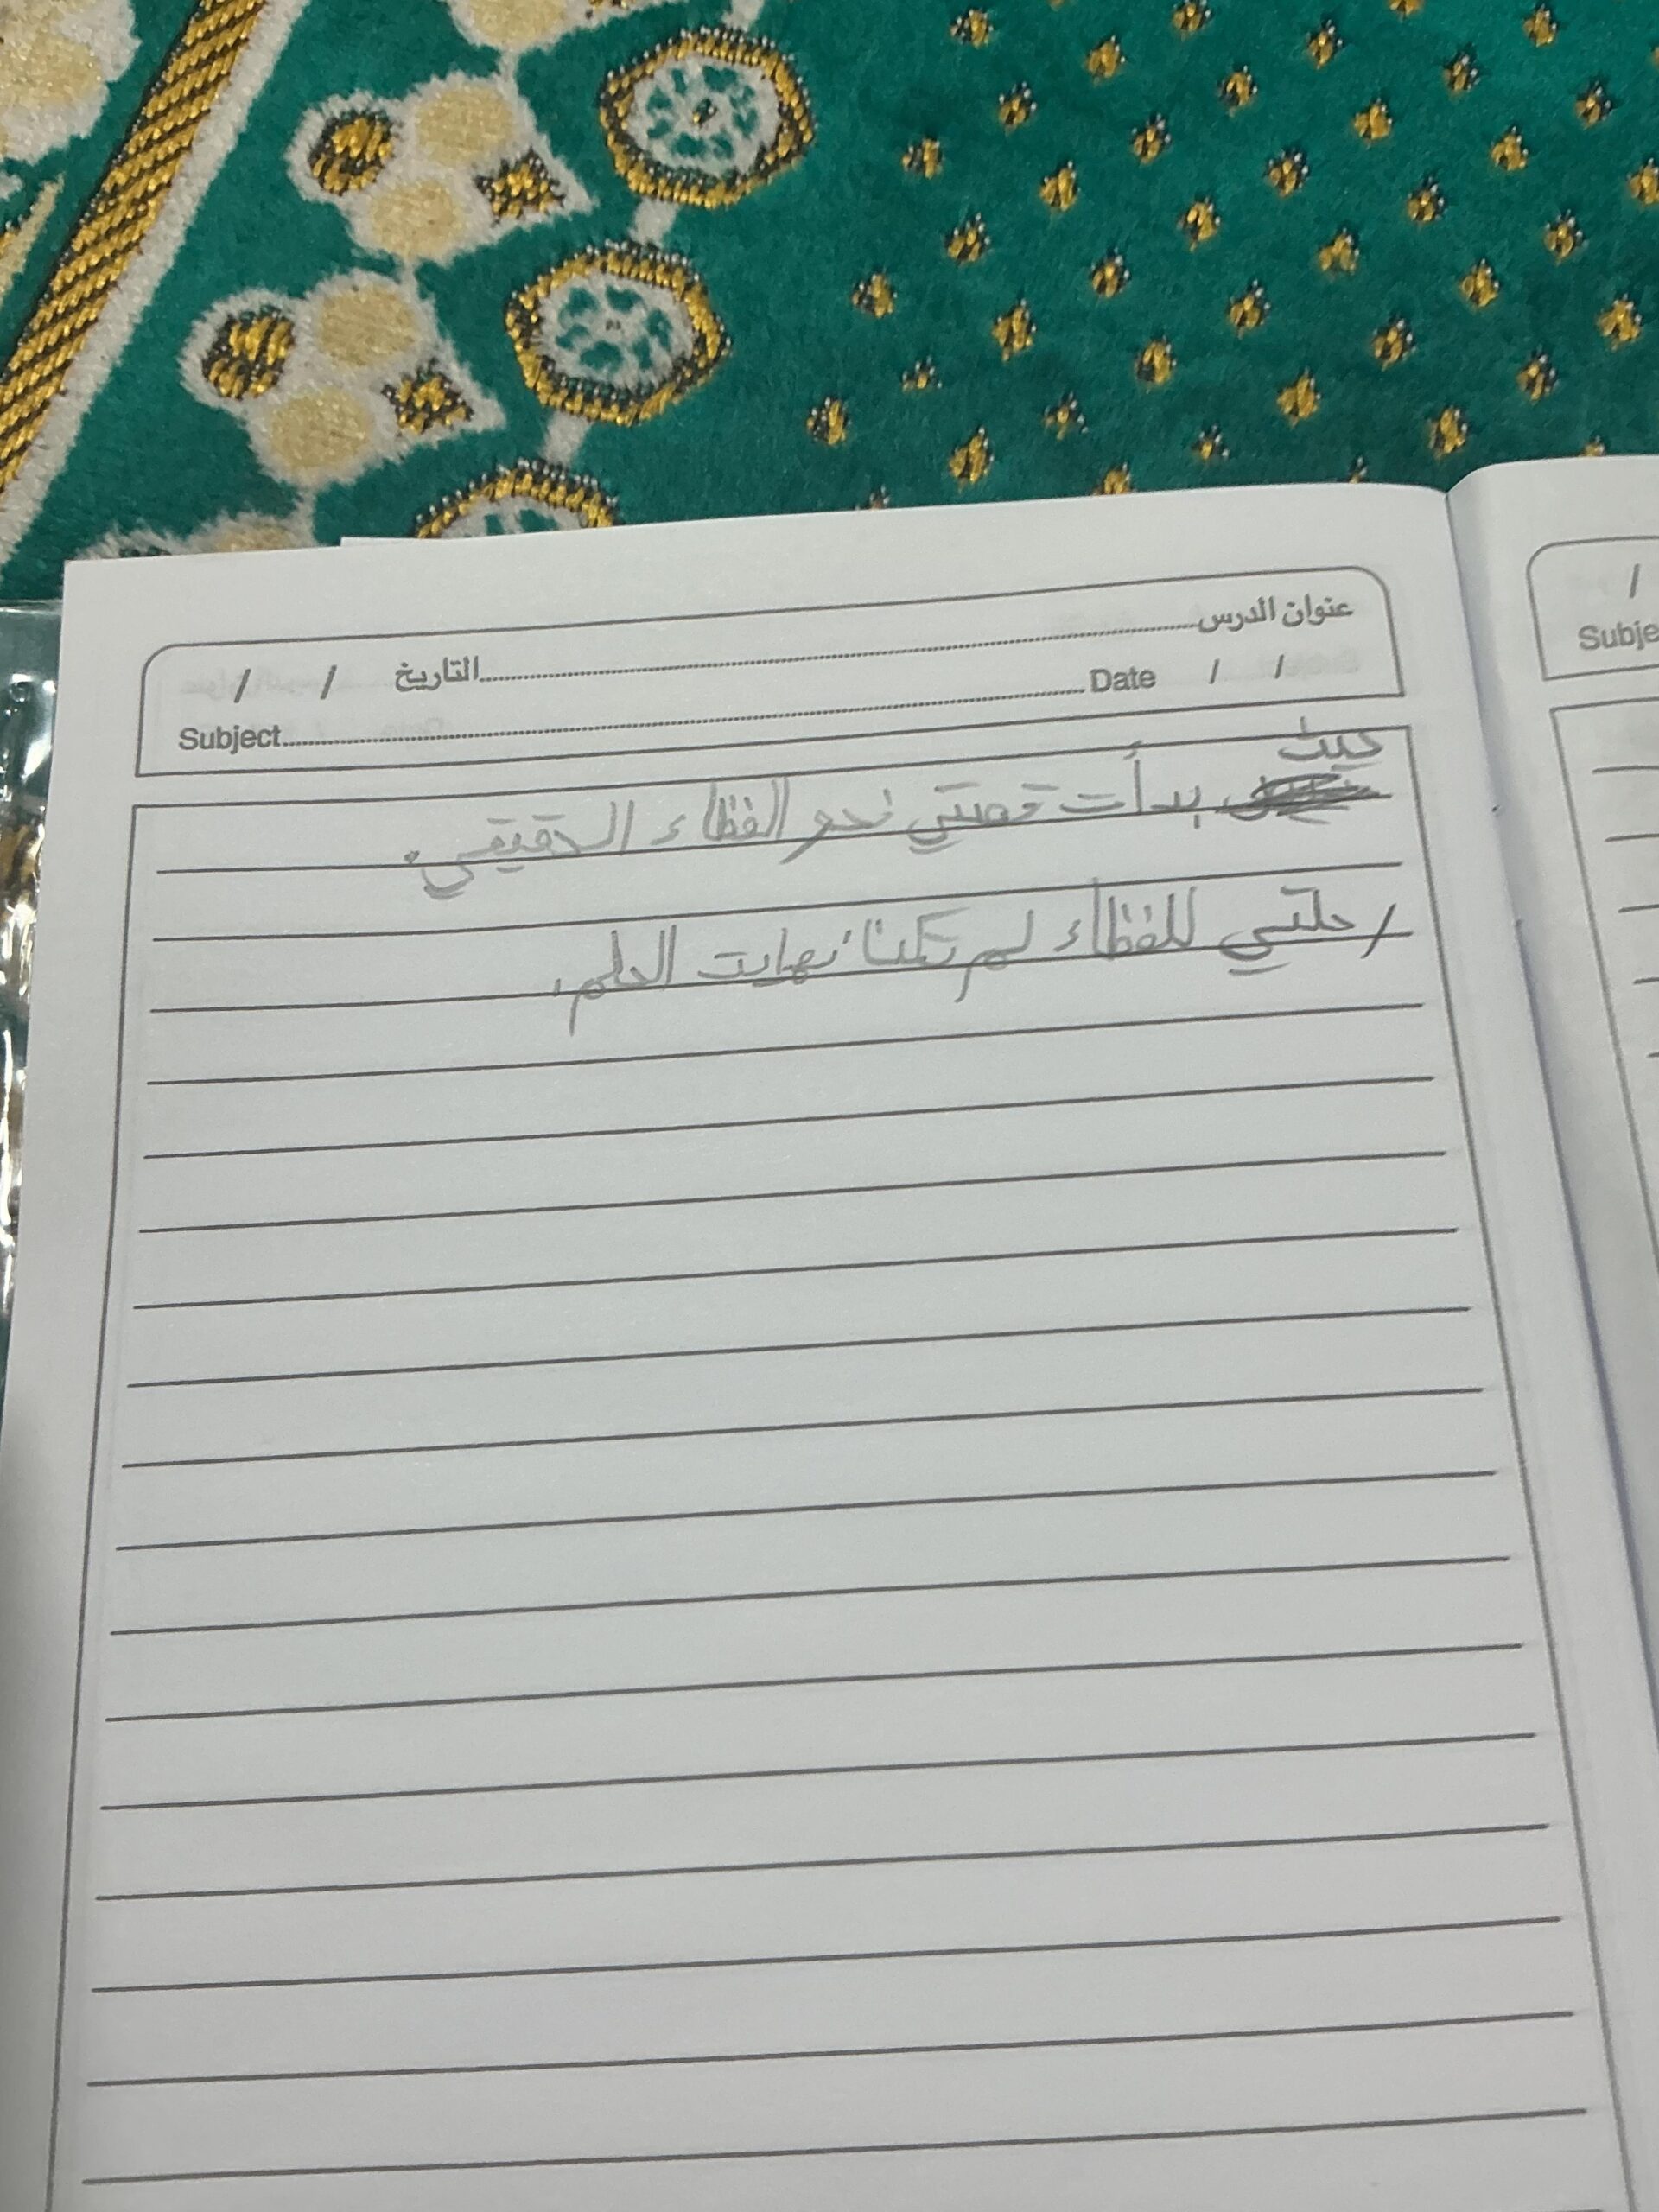 عنوان الدرس........................التاريخ / /
Subject........................Date / /
حيث
بدأت قصتي نحو الفظاء الحقيقي.
رحلتي للفظاء لم تكنا نهايت الحلم.
/
Subje